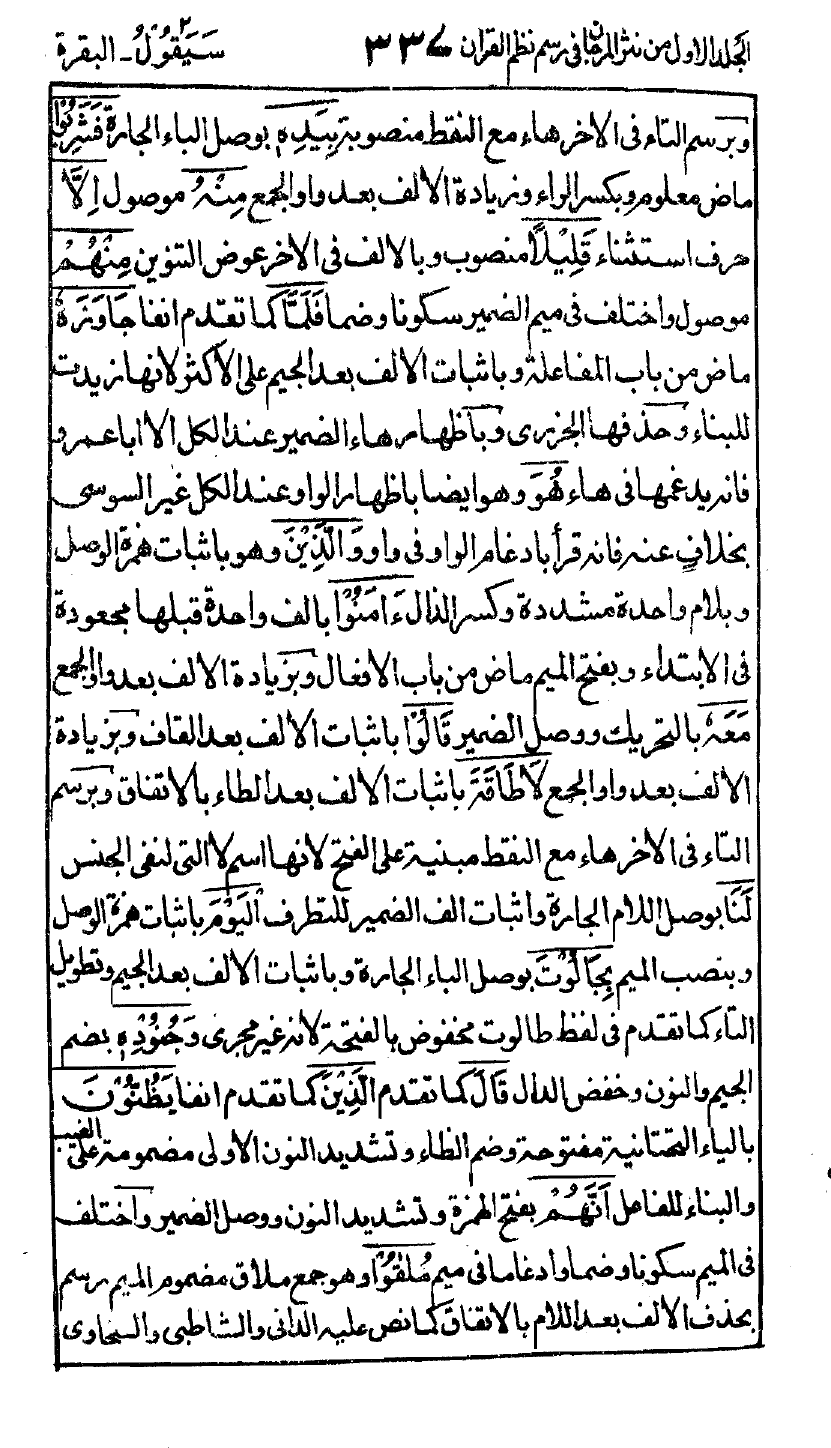 الجلد الاول من نثر المرجان فى رسم نظم القران ٣٣٧ سَيَقُولُ ٢ ـ البقرة
وبرسم التاء فى الاخر هاء مع النقط منصوبة بِيَدِهٖ بوصل الباء الجارة فَشَرِبُوْا
ماض معلوم وبكسر الراء وزيادة الالف بعد واو الجمع مِنْهُ موصول اِلَّا
حرف استثناء قَلِيْلًا منصوب وبالالف فى الاخر عوض التنوين مِنْهُمْ
موصول واختلف فى ميم الضمير سكونا وضما فَلَمَّا كما تقدم انفا جَاوَزَهٗ
ماض من باب المفاعلة وباثبات الالف بعد الجيم على الاكثر لانها زيدت
للبناء وحذفها الجزرى وباظهار هاء الضمير عند الكل الا ابا عمرو
فانه يدغمها فى هاء هُوَ وهو ايضا باظهار الواو عند الكل غير السوسى
بخلاف عنه فانه قرأ بادغام الواو فى واو وَالَّذِيْنَ وهو باثبات همزة الوصل
وبلام واحدة مشددة وكسر الذال ءَامَنُوْا بالف واحدة قبلها مجعودة
فى الابتداء وبفتح الميم ماض من باب الافعال وبزيادة الالف بعد واو الجمع
مَعَهٗ بالتحريك ووصل الضمير قَالُوْا باثبات الالف بعد القاف وبزيادة
الالف بعد واو الجمع لَا طَاقَةَ باثبات الالف بعد الطاء بالاتفاق وبرسم
التاء فى الاخر هاء مع النقط مبنية على الفتح لانها اسم لا التى لنفى الجنس
لَنَا بوصل اللام الجارة واثبات الف الضمير للتطرف اَلْيَوْمَ باثبات همزة الوصل
وبنصب الميم بِجَالُوْتَ بوصل الباء الجارة وباثبات الالف بعد الجيم وتطويل
التاء كما تقدم فى لفظ طالوت مخفوض بالفتحة لانه غير مجرى وَجُنُوْدِهٖ بضم
الجيم والنون وخفض الدال قَالَ كما تقدم الَّذِيْنَ كما تقدم انفا يَظُنُّوْنَ
بالياء التحتانية مفتوحة وضم الظاء وتشديد النون الاولى مضمومة على الغيب
والبناء للفاعل اَنَّهُمْ بفتح الهمزة وتشديد النون ووصل الضمير واختلف
فى الميم سكونا وضما وادغاما فى ميم مُلٰقُوْا وهو جمع ملاق مضموم الميم رسم
بحذف الالف بعد اللام بالاتفاق كما نص عليه الدانى والشاطبى والسخاوى